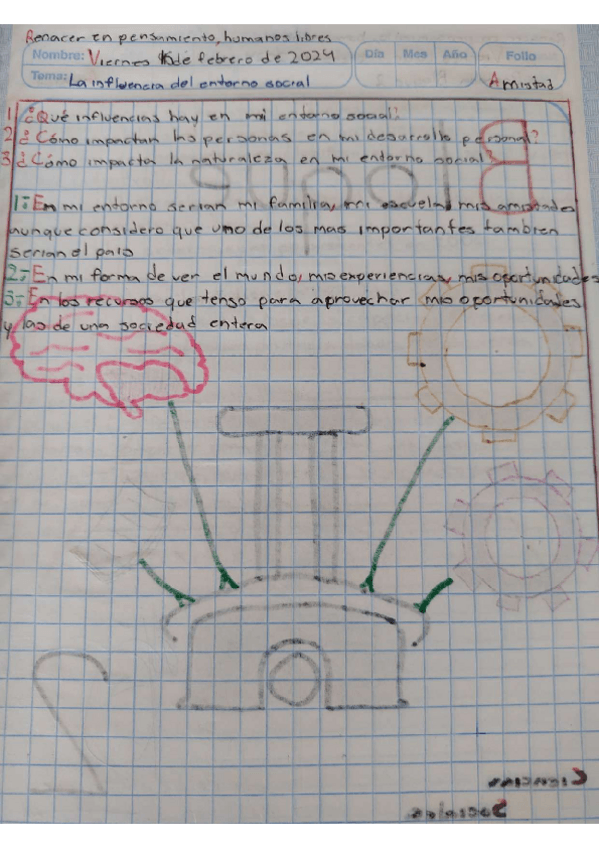 Renacer en pensamiento, humanos libres
Nombre: Viernes 16 de febrero de 2024 Día Mes Año Folio
Tema: La influencia del entorno social Amistad
1 ¿Qué influencias hay en mi entorno social?
2 ¿Cómo impactan las personas en mi desarrollo personal?
3 ¿Cómo impacta la naturaleza en mi entorno social?
1:- En mi entorno serian mi familia, mi escuela, mis amistades
aunque considero que uno de los mas importantes tambien
serian el pais
2:- En mi forma de ver el mundo, mis experiencias, mis oportunidades
3:- En los recursos que tengo para aprovechar mis oportunidades
y las de una sociedad entera
Ciencias
Sociales